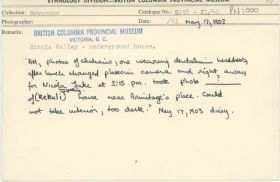 ETHNOLOGY DIVISION—BRITISH COLUMBIA PROVINCIAL MUSEUM
Collection: Newcombe
Catalogue No.:
PN 1000
Department:
Date: /03 May 17, 1903
Remarks:
BRITISH COLUMBIA PROVINCIAL MUSEUM
VICTORIA, B. C.
Nicola Valley - underground house.
"AM, photos of Indians, one wearing dentalium headdress
after lunch changed plates in camera and right away
for Nicola Lake at 3:15 pm. took photo
of (Kekuli) house near Armitage's place. Could
not take interior, too dark." May 17, 1903 diary.